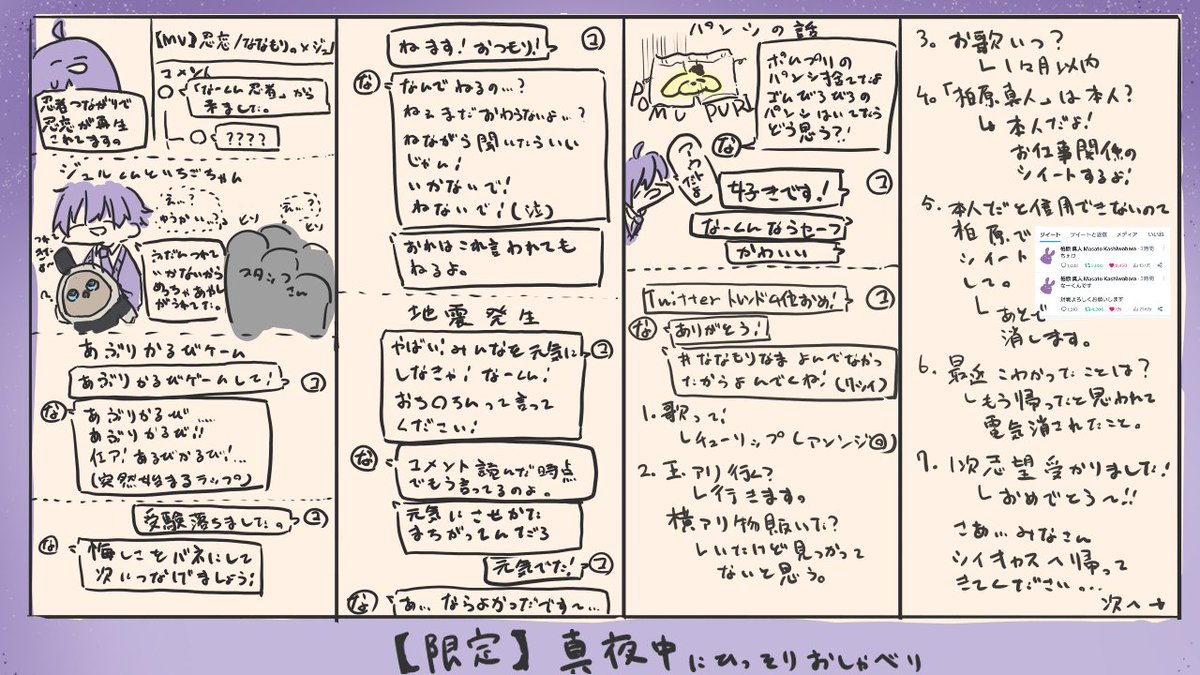 【MV】忍恋/ななもり。×ジェル
コメント
「なーくん忍者」から
来ました。
????
忍者つながりで
忍恋が再生
されてますの
ジェルくんといちごちゃん
え…?
ゆうかい…?
え…?
ヒソ
ヒソ
スタッフ
さん
うでにつれて
いかないから
めちゃあやし
がられてた。
あぶりかるびゲーム
あぶりかるびゲームして!
コ
な
あぶりかるび……
あぶりかるび!!
仁ア!あるびかるび!…
(突然始まるラップ)
受験落ちました。
コ
な
悔しさをバネにして
次につなげましょう!
ねます!おつもり!
コ
な
なんでねるの…?
ねぇまだおわらないよ…?
ねながら聞いたらいい
じゃん!
いかないで!
ねないで!(泣)
おれはこれ言われても
ねるよ。
地震発生
やばい!みんなを元気に
しなきゃ!なーくん!
おちのちんって言って
ください!
コ
な
コメント読んだ時点
でもう言ってるのよ。
元気にさせかた
まちがってんだろ
元気でた!
コ
な
あぃ、ならよかったです〜…
パンツの話
POMU PURI
ポムプリの
パンツ捨ててたよ
ゴムびろびろの
パンツはいてたら
どう思う?!
な
アウトだよ
好きです!
コ
なーくんならセーフ
かわいい
Twitterトレンド4位おめ!
コ
な
ありがとう!
#ななもりなま よんでなかっ
たからよんでくね!(リツイ)
1.歌って!
↳チューリップ(アンジ回)
2.玉アリ行く?
↳行きますの
横アリ物販いた?
↳いたけど見つかって
ないと思う。
3.お歌いつ?
↳1ヶ月以内
4.「柏原真人」は本人?
↳本人だよ!
お仕事関係の
ツイートするよ!
5.本人だと信用できないので
柏原で
ツイート
して。
↳あとで
消します。
ツイート ツイートと返信 メディア いいね
柏原 真人 Masato Kashiwabara
ちぇけ
柏原 真人 Masato Kashiwabara
なーくんです
対戦よろしくお願いします
6.最近こわかったことは?
↳もう帰ったと思われて
電気消されたこと。
7.1次志望受かりました!
↳おめでとう〜!!
さあ…みなさん
ツイキャスへ帰って
きてください…
次へ→
【限定】真夜中にひっそりおしゃべり